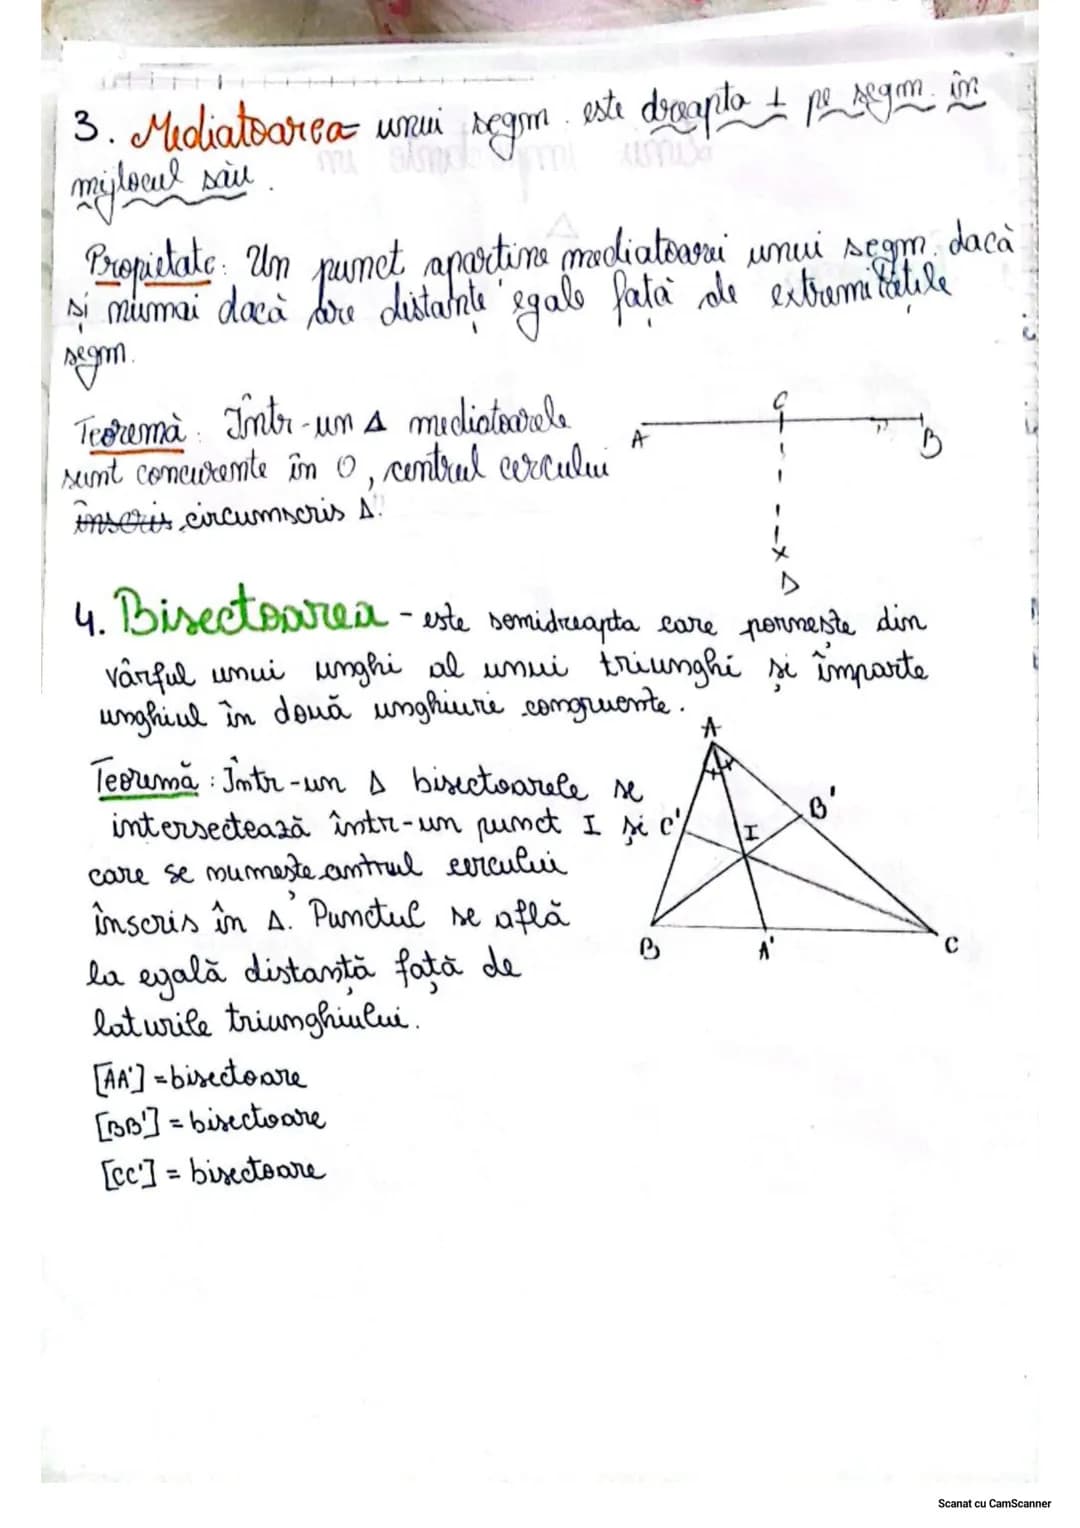 3. Mediatoarea unui segm. este dreapta ⊥ pe segm. în
mijlocul său.
Propietate: Un punct aparține mediatoarei unui segm. dacă
și numai dacă are distanțe egale față de extremitățile
segm.
Teoremă: Într-un Δ mediatoarele
sunt concurente în O, centrul cercului
înscris circumscris Δ.
A C B
D
4. Bisectoarea - este semidreapta care pornește din
vârful unui unghi al unui triunghi și împarte
unghiul în două unghiuri congruente.
Teoremă: Într-un Δ bisectoarele se
intersectează într-un punct I și
care se numește centrul cercului
înscris în Δ. Punctul se află
la egală distanță față de
laturile triunghiului.
A
B'
C'
I
B A' C
[AA'] = bisectoare
[BB'] = bisectoare
[CC'] = bisectoare
Scanat cu CamScanner